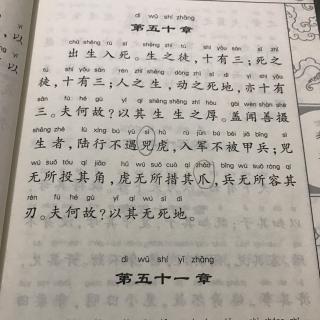 dì wǔ shí zhāng
第五十章
chū shēng rù sǐ shēng zhī tú shí yǒu sān sǐ zhī
出生入死。生之徒，十有三；死之
tú shí yǒu sān rén zhī shēng dòng zhī sǐ dì yì shí yǒu
徒，十有三；人之生，动之死地，亦十有
sān fú hé gù yǐ qí shēng shēng zhī hòu gài wén shàn shè
三。夫何故？以其生生之厚。盖闻善摄
shēng zhě lù xíng bú yù sì hǔ rù jūn bú bèi jiǎ bīng sì
生者，陆行不遇兕虎，入军不被甲兵；兕
wú suǒ tóu qí jiǎo hǔ wú suǒ cuò qí zhǎo bīng wú suǒ róng qí
无所投其角，虎无所措其爪，兵无所容其
rèn fú hé gù yǐ qí wú sǐ dì
刃。夫何故？以其无死地。
dì wǔ shí yī zhāng
第五十一章